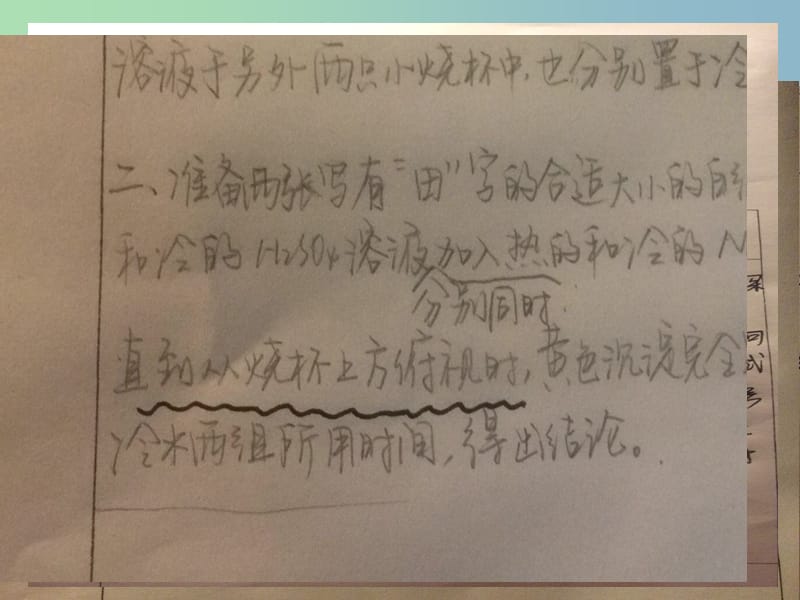 溶液于另外两只小烧杯中,也分别置于冷
二、准备两张写有"田"字的合适大小的白
和冷的H2SO4溶液加入热的和冷的N
分别同时
直到从烧杯上方俯视时,黄色沉淀完全
冷水两组所用时间,得出结论。